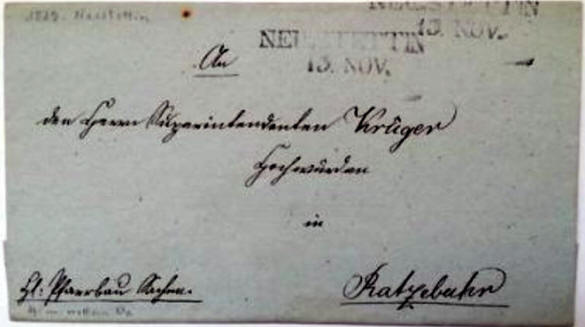 1829. Neustettin
NEUSTETTIN
13. NOV.
NEUSTETTIN
13. NOV.
An
den Herrn Superintendenten Krüger
Hochwürden
in
Hl: Pfarrbau Sachen.
Ratzebuhr